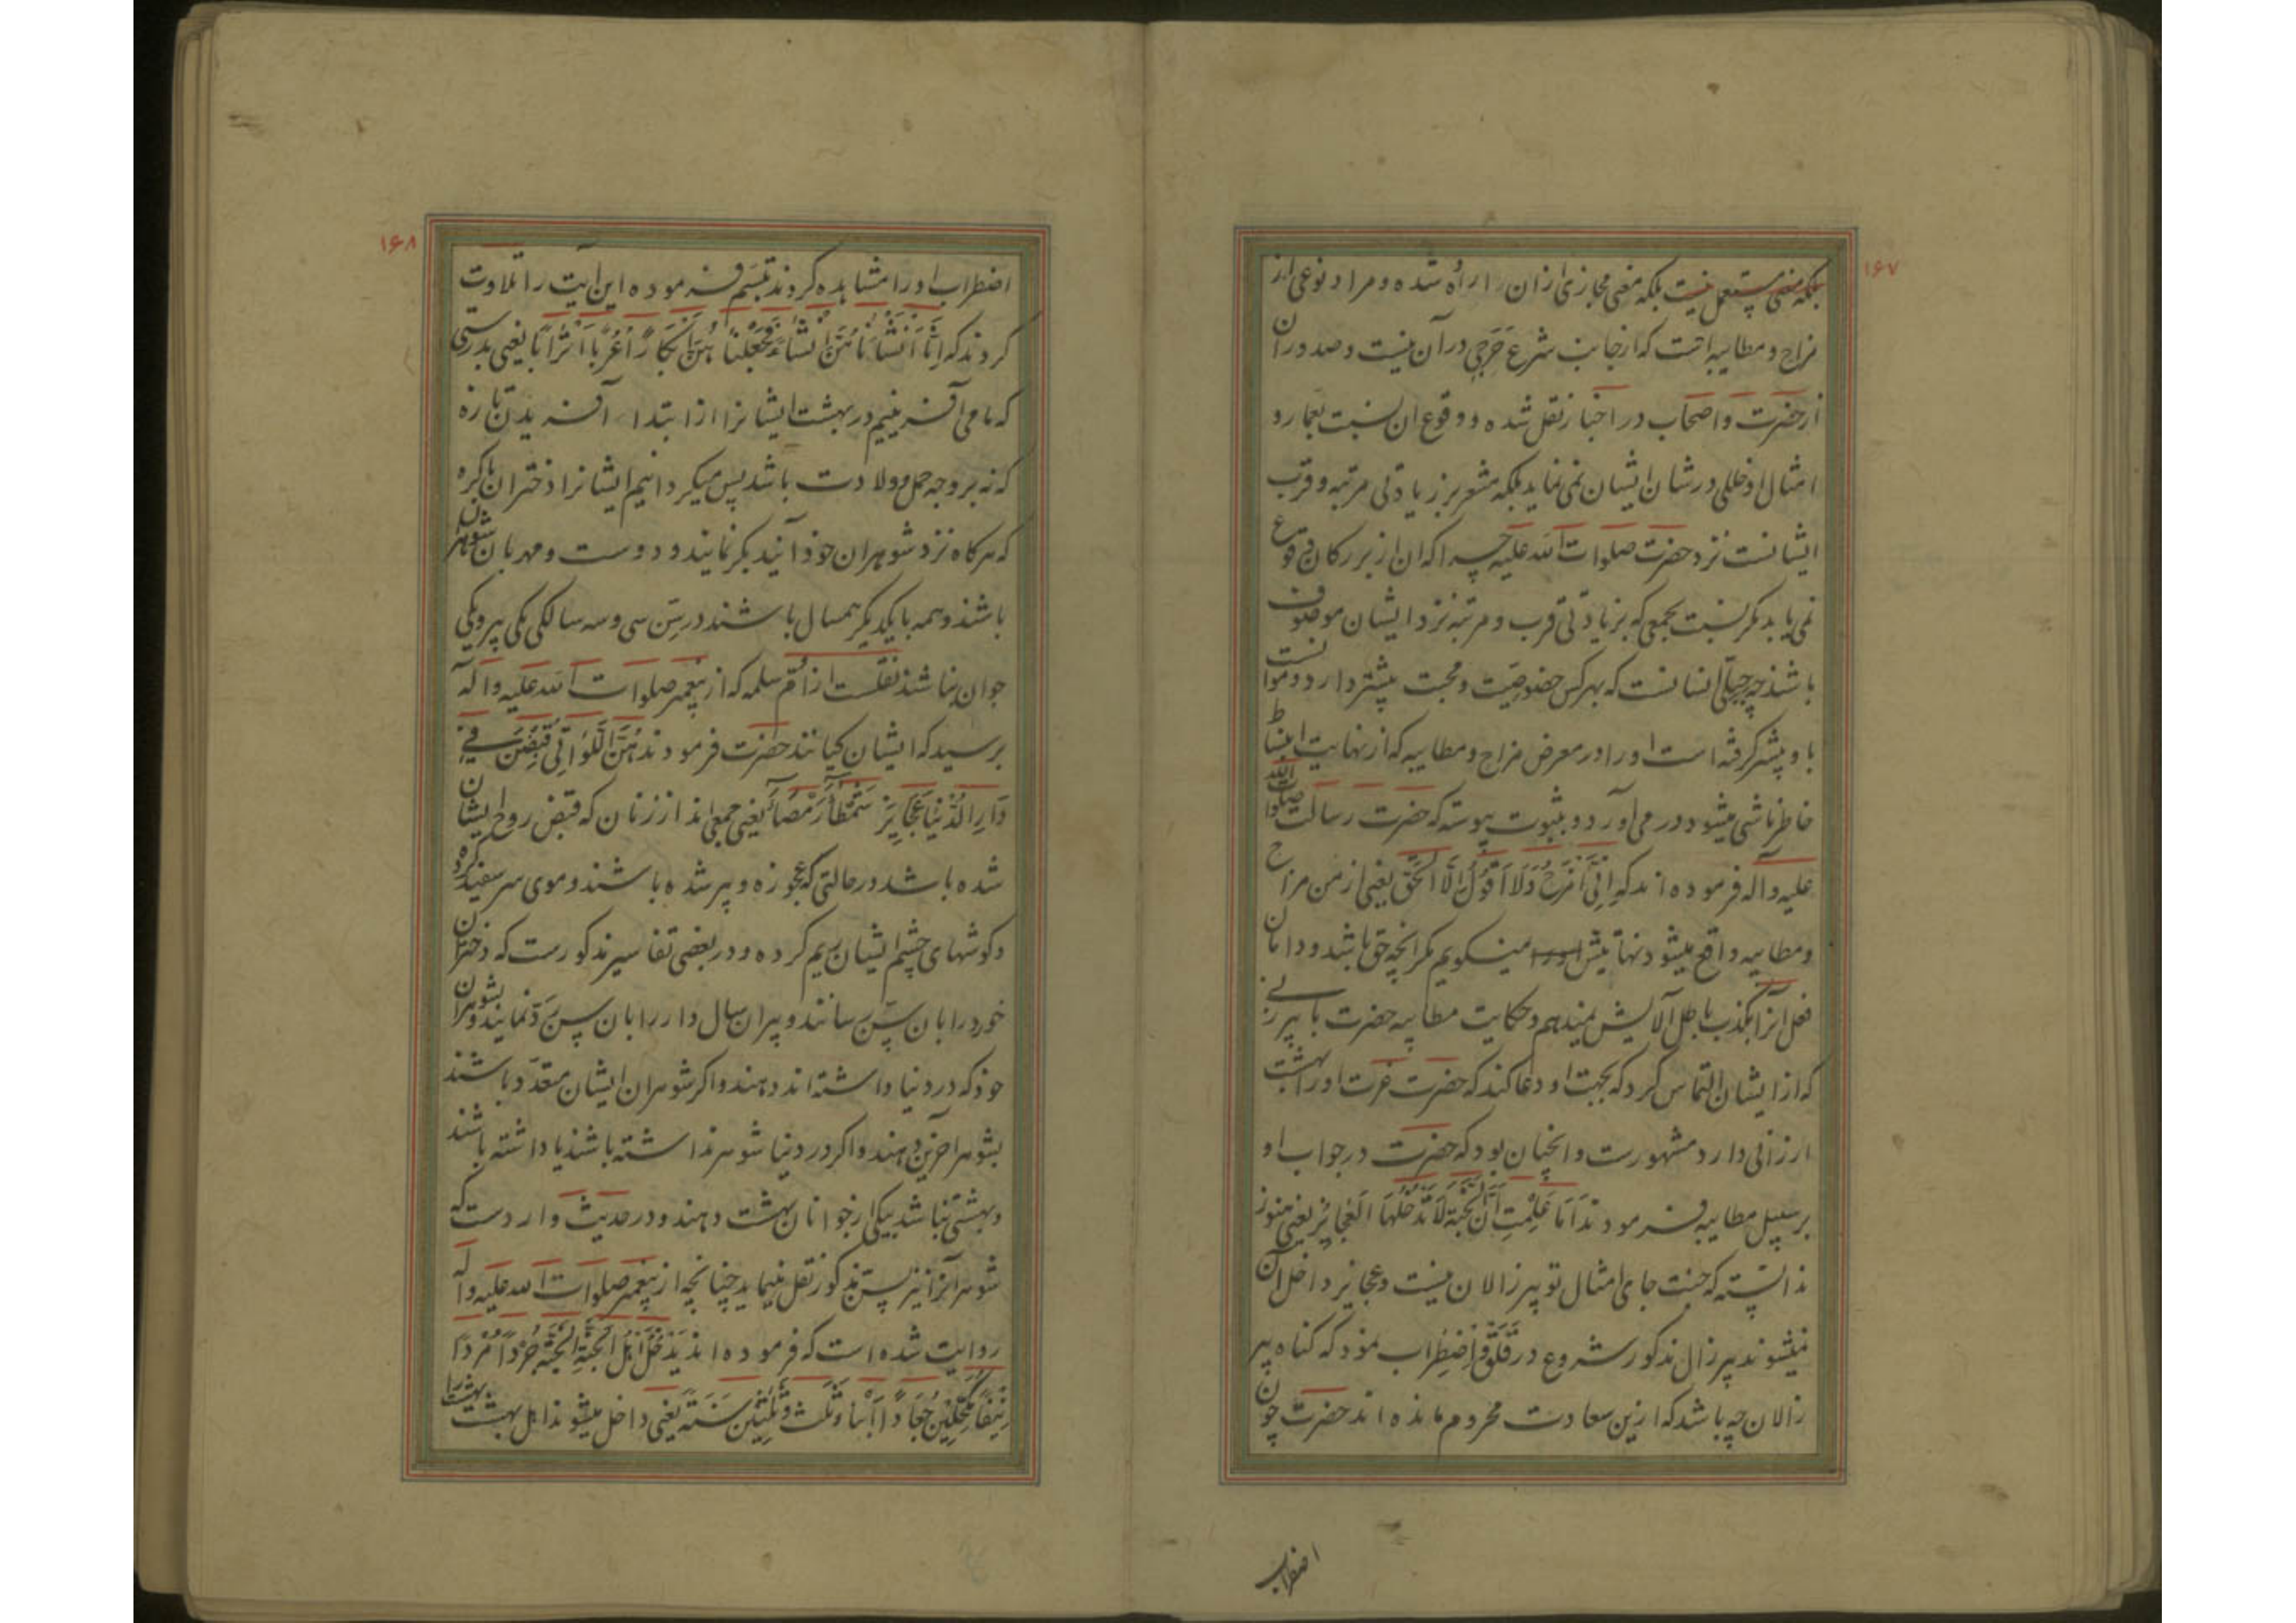 ۱۶۷
بلکه معنی مستعمل نیست بلکه معنی مجازی ازان اراده شده و مراد نوعی از
مزاح و مطایبه است که از جانب شرع حَرَجی در آن نیست و صدور ان
از حضرت و اصحاب در اخبار نقل شده و وقوع ان نسبت بعمار و
امثال او خللی در شان ایشان نمی نماید بلکه مشعر بر زیادتی مرتبه و قرب
ایشانست نزد حضرت صلوات الله علیه چرا که ان از بزرکان وقوع
نمی یابد مکر نسبت بجمعی که بزیادتی قرب و مرتبه نزد ایشان موصوف
باشند چه جبلّی انسانست که بهر کس خصوصیّت و محبت بیشتر دارد و موانست
با و بیشتر کرفته است او را در معرض مزاح و مطایبه که از نهایت انبساط
خاطر ناشی میشود در می آورد و بثبوت پیوسته که حضرت رسالت صلوات الله
علیه و اله فرموده اند که اِنِّی اَمْزَحُ وَلَا اَقُولُ اِلَّا الْحَقَّ یعنی از من مزاح
و مطایبه واقع میشود نهایتش نمیکویم مکر انچه حق باشد و دامان
فعل انرا بکذب باطل آلایش نمیدهم و حکایت مطایبه حضرت با پیر زنی
که از ایشان التماس کرد که بجهت او دعا کند که حضرت عزت او را بهشت
ارزانی دارد مشهورست و انچنان بود که حضرت در جواب او
بر سبیل مطایبه فرمودند اَمَا عَلِمْتِ اَنَّ الْجَنَّةَ لَا تَدْخُلُهَا الْعَجَایِزُ یعنی هنوز
ندانسته که جنت جای امثال تو پیر زالان نیست و عجایز داخل آن
نمیشوند پیر زال مذکور شروع در قَلَق و اِضْطِراب نمود که کناه پیر
زالان چه باشد که ازین سعادت محروم مانده اند حضرت چون
اضطراب
۱۶۸
اضطراب او را مشاهده کردند تبسّم فرموده این آیت را تلاوت
کردند که اِنَّا اَنْشَأْنَاهُنَّ اِنْشَاءً فَجَعَلْنَاهُنَّ اَبْکَارًا عُرُبًا اَتْرَابًا یعنی بدرستی
که ما می آفرینیم در بهشت ایشانرا از ابتدا آفریدن تازه
که نه بر وجه حمل و ولادت باشد پس میکردانیم ایشانرا دختران باکره
که هر کاه نزد شوهران خود آیند بکر نمایند و دوست و مهربان شوهران
باشند و همه با یکدیکر همسال باشند در سِنّ سی و سه سالکی یکی پیر و یکی
جوان نباشد نقلست از اُمّ سلمه که از پیغمبر صلوات الله علیه و اله
پرسید که ایشان کیانند حضرت فرمودند هُنَّ اللَّوَاتِی قُبِضْنَ فِی
دَارِ الدُّنْیَا عَجَایِزَ شُمْطًا رُمْصًا یعنی جمعی اند از زنان که قبض روح ایشان
شده باشد در حالتی که عجوزه و پیر شده باشند و موی سر سفید کرده
و کوشهای چشم ایشان ریم کرده و در بعضی تفاسیر مذکورست که دختران
خورد را بان سِنّ رسانند و پیران سال دار را بان سِنّ ردّ نمایند و بشوهران
خود که در دنیا داشته اند دهند و اکر شوهران ایشان متعدّد باشند
بشوهر اخرین دهند و اکر در دنیا شوهر نداشته باشند یا داشته باشند
و بهشتی نباشد بیکی از جوانان بهشت دهند و در حدیث واردست که
شوهر آنرا نیز بسنّ مذکور نقل مینماید چنانچه از پیغمبر صلوات الله علیه و اله
روایت شده است که فرموده اند یَدْخُلُ اَهْلُ الْجَنَّةِ الْجَنَّةَ جُرْدًا مُرْدًا
بِیْضًا مُکَحَّلِینَ جُعَادًا اَبْنَاءَ ثَلٰثٍ وَّثَلٰثِینَ سَنَةً یعنی داخل میشوند اهل بهشت بهشت را